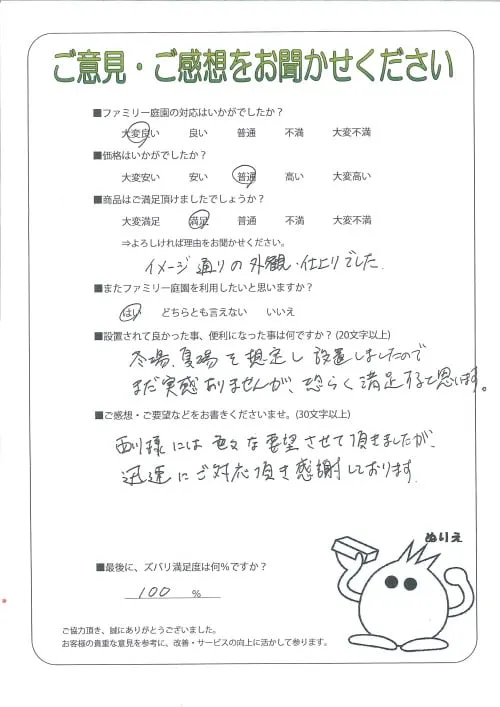 ご意見・ご感想をお聞かせください
■ファミリー庭園の対応はいかがでしたか？
大変良い 良い 普通 不満 大変不満
■価格はいかがでしたか？
大変安い 安い 普通 高い 大変高い
■商品はご満足頂けましたでしょうか？
大変満足 満足 普通 不満 大変不満
⇒よろしければ理由をお聞かせください。
イメージ通りの外観・仕上りでした.
■またファミリー庭園を利用したいと思いますか？
はい どちらとも言えない いいえ
■設置されて良かった事、便利になった事は何ですか？(20文字以上)
冬場、夏場を想定し設置しましたので
まだ実感ありませんが、恐らく満足すると思います。
■ご感想・ご要望などをお書きくださいませ。(30文字以上)
西川様には色々な要望させて頂きましたが、
迅速にご対応頂き感謝しております.
ぬりえ
■最後に、ズバリ満足度は何％ですか？
100 %
ご協力頂き、誠にありがとうございました。
お客様の貴重な意見を参考に、改善・サービスの向上に活かして参ります。